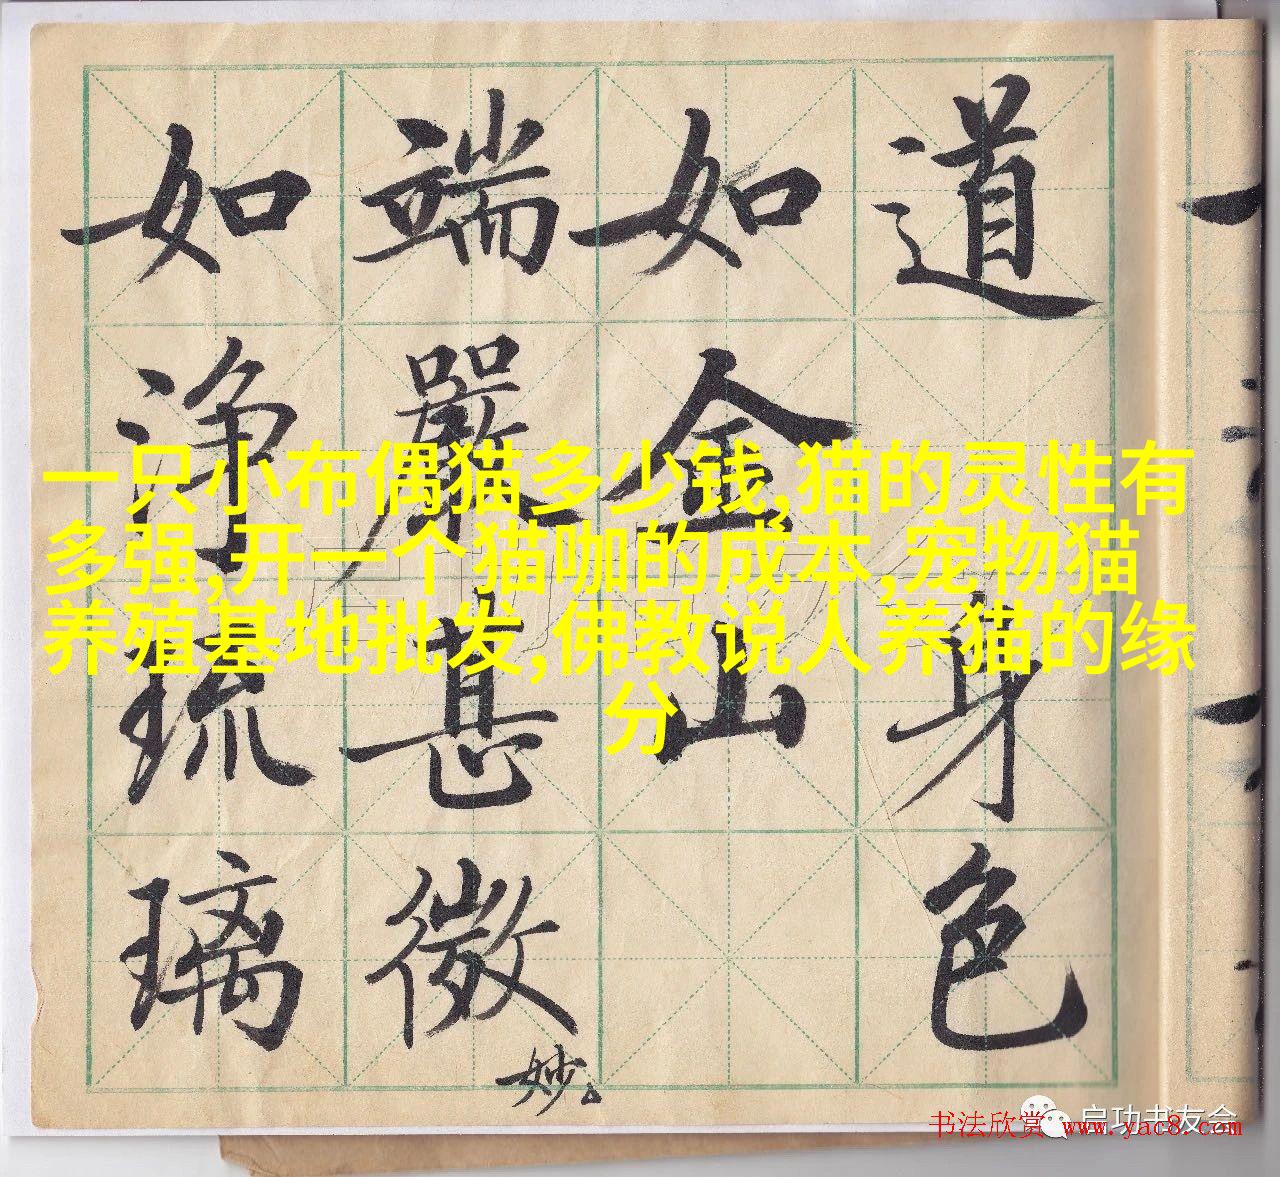 道身色
如金山
端嚴甚微妙
如淨琉璃
一只小布偶猫多少钱,猫的灵性有
多强,开一个猫咖的成本,宠物猫
养殖基地批发,佛教说人养猫的缘
分
启功书友会
书法欣赏 www.yac8.com